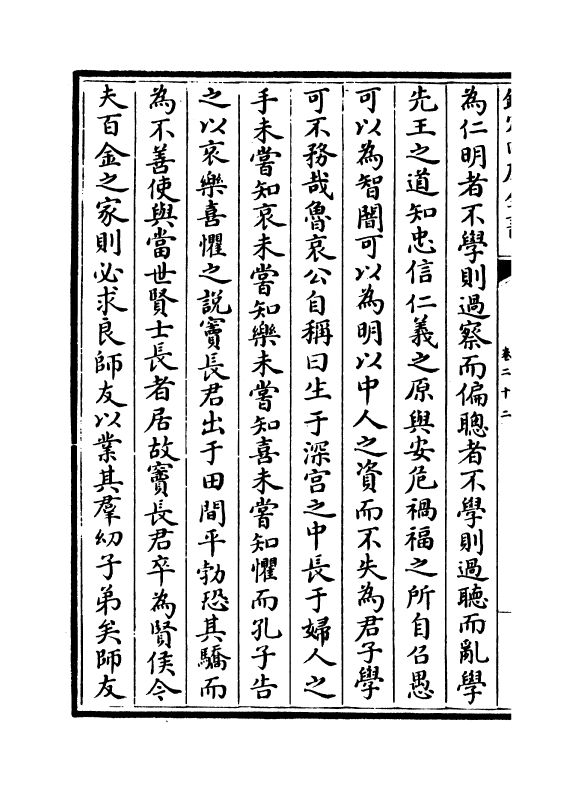 欽定四庫全書
卷二十二
為仁明者不學則過察而偏聰者不學則過聽而亂學
先王之道知忠信仁義之原與安危禍福之所自召愚
可以為智闇可以為明以中人之資而不失為君子學
可不務哉魯哀公自稱曰生于深宫之中長于婦人之
手未嘗知哀未嘗知樂未嘗知喜未嘗知懼而孔子告
之以哀樂喜懼之説竇長君出于田間平勃恐其驕而
為不善使與當世賢士長者居故竇長君卒為賢侯今
夫百金之家則必求良師友以業其羣幼子弟矣師友